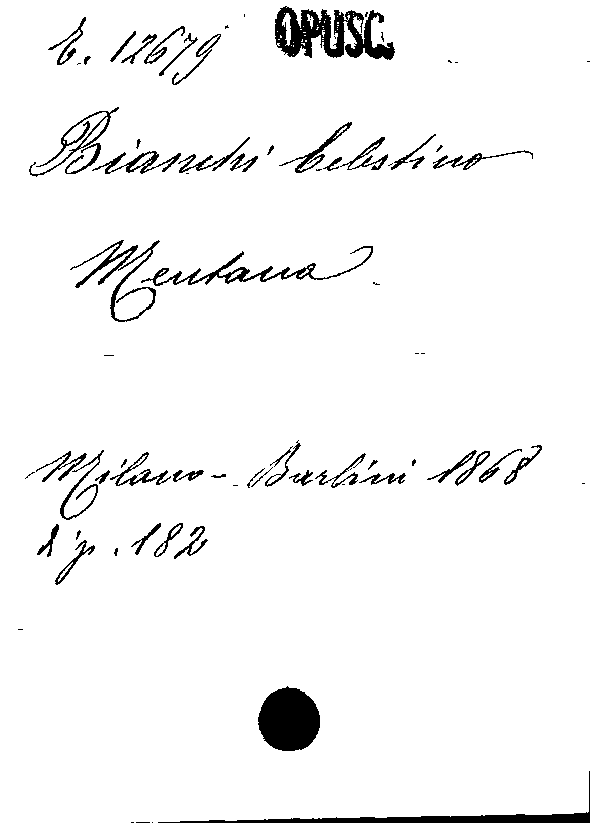 E. 12679 OPUSC.
Bianchi Celestino
Mentana
Milano - Barbini 1868
di p. 182